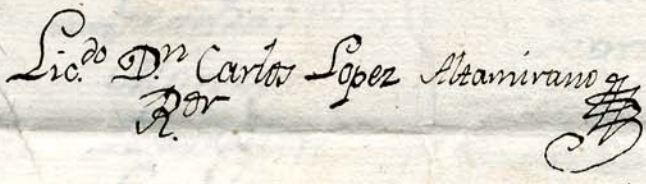 Lic.do D.n Carlos Lopez Altamirano
R.or